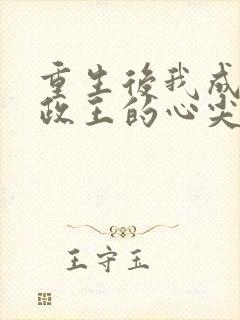 重生後我成
政王的心尖
王守玉